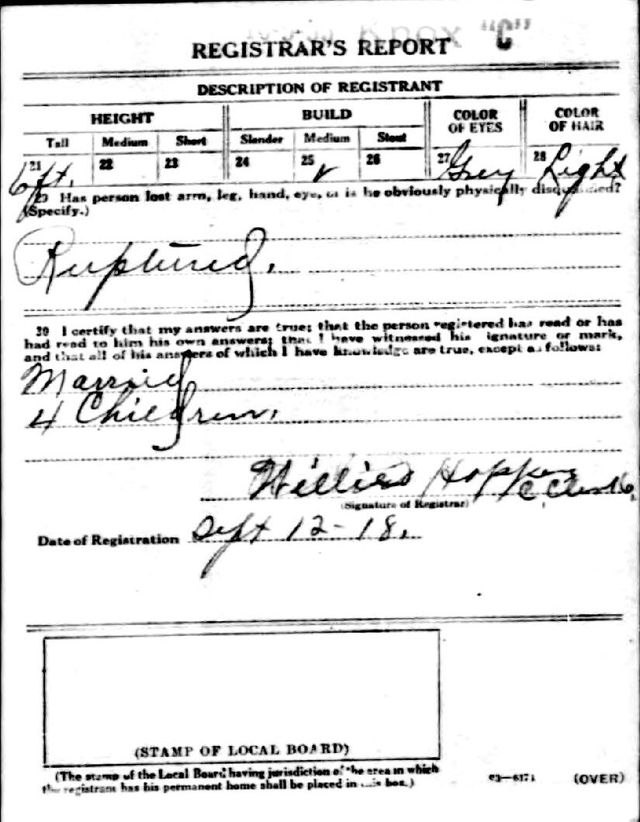 Knox "C"
REGISTRAR'S REPORT
DESCRIPTION OF REGISTRANT
HEIGHT BUILD COLOR OF EYES COLOR OF HAIR
Tall Medium Short Slender Medium Stout
21 22 23 24 25 26 27 28
6 ft. ✓ Grey Light
29 Has person lost arm, leg, hand, eye, or is he obviously physically disqualified?
(Specify.)
Ruptured.
30 I certify that my answers are true; that the person registered has read or has
had read to him his own answers; that I have witnessed his signature or mark,
and that all of his answers of which I have knowledge are true, except as follows:
Married
4 Children.
Willis Hopkins
(Signature of Registrar)
Date of Registration Sept 12-18.
(STAMP OF LOCAL BOARD)
(The stamp of the Local Board having jurisdiction of the area in which
the registrant has his permanent home shall be placed in this box.)
03—6171 (OVER)